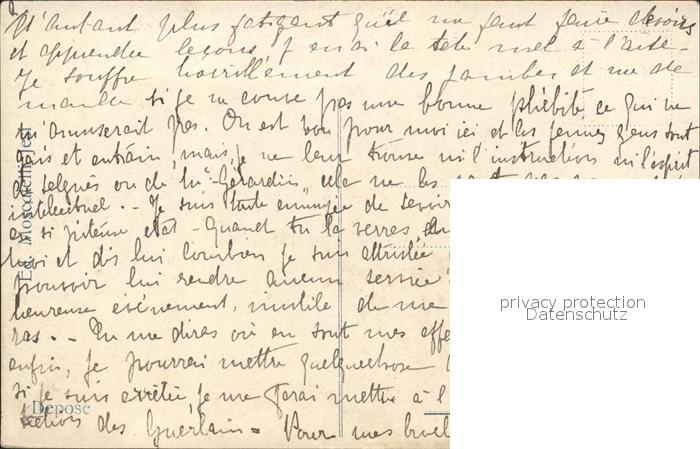 d'autant plus fatigant qu'il me faut faire devoirs
et apprendre leçons, j'en ai la tête mal à l'aise.
Je souffre horriblement des jambes et me de
mande si je ne couve pas une bonne phlébite, ce qui ne
m'amuserait pas. On est bon pour moi ici et les jeunes gens sont
gais et entrain, mais, je ne leur trouve ni l'instruction ni l'esprit
de Selgnés ou de Mr Gérardin, cela ne les
intellectuel. - Je suis toute ennuyée de savoir
en si piteuse état - Quand tu la verras,
moi et dis lui combien je suis attristée
pouvoir lui rendre aucun service
heureuse événement, inutile de me
ras. - Tu me diras où en sont mes affe
enfin, je pourrai mettre quelque chose
si je suis arrêtée, je me ferai mettre à l
sections des Guerlain = Pour mes
Ed. Moscatelli
Déposé
privacy protection
Datenschutz